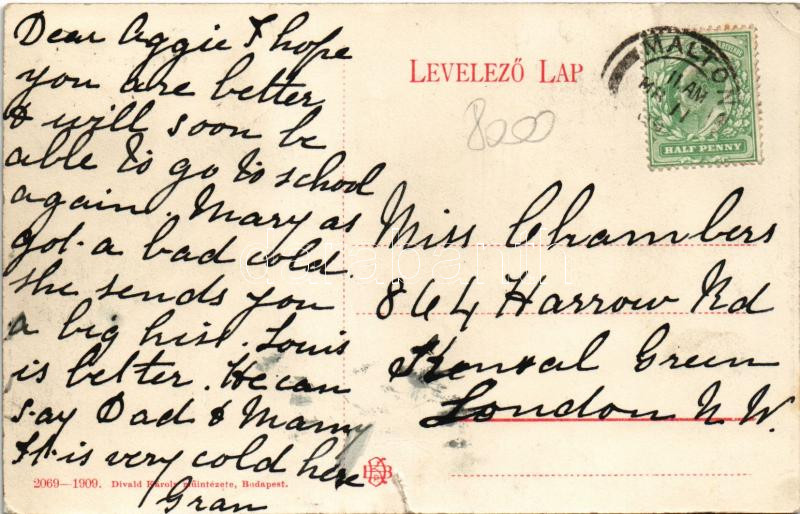 Dear Aggie I hope
you are better
& will soon be
able to go to school
again. Mary as
got a bad cold.
she sends you
a big kiss. Louis
is better. He can
say Dad & Mamy
It is very cold here
Gran
LEVELEZŐ LAP
8000
MALTON
11 AM
MR 11
HALF PENNY
Miss Chambers
864 Harrow Rd
Kensal Green
London N.W.
2069—1909. Divald Károly műintézete, Budapest.
darabanth